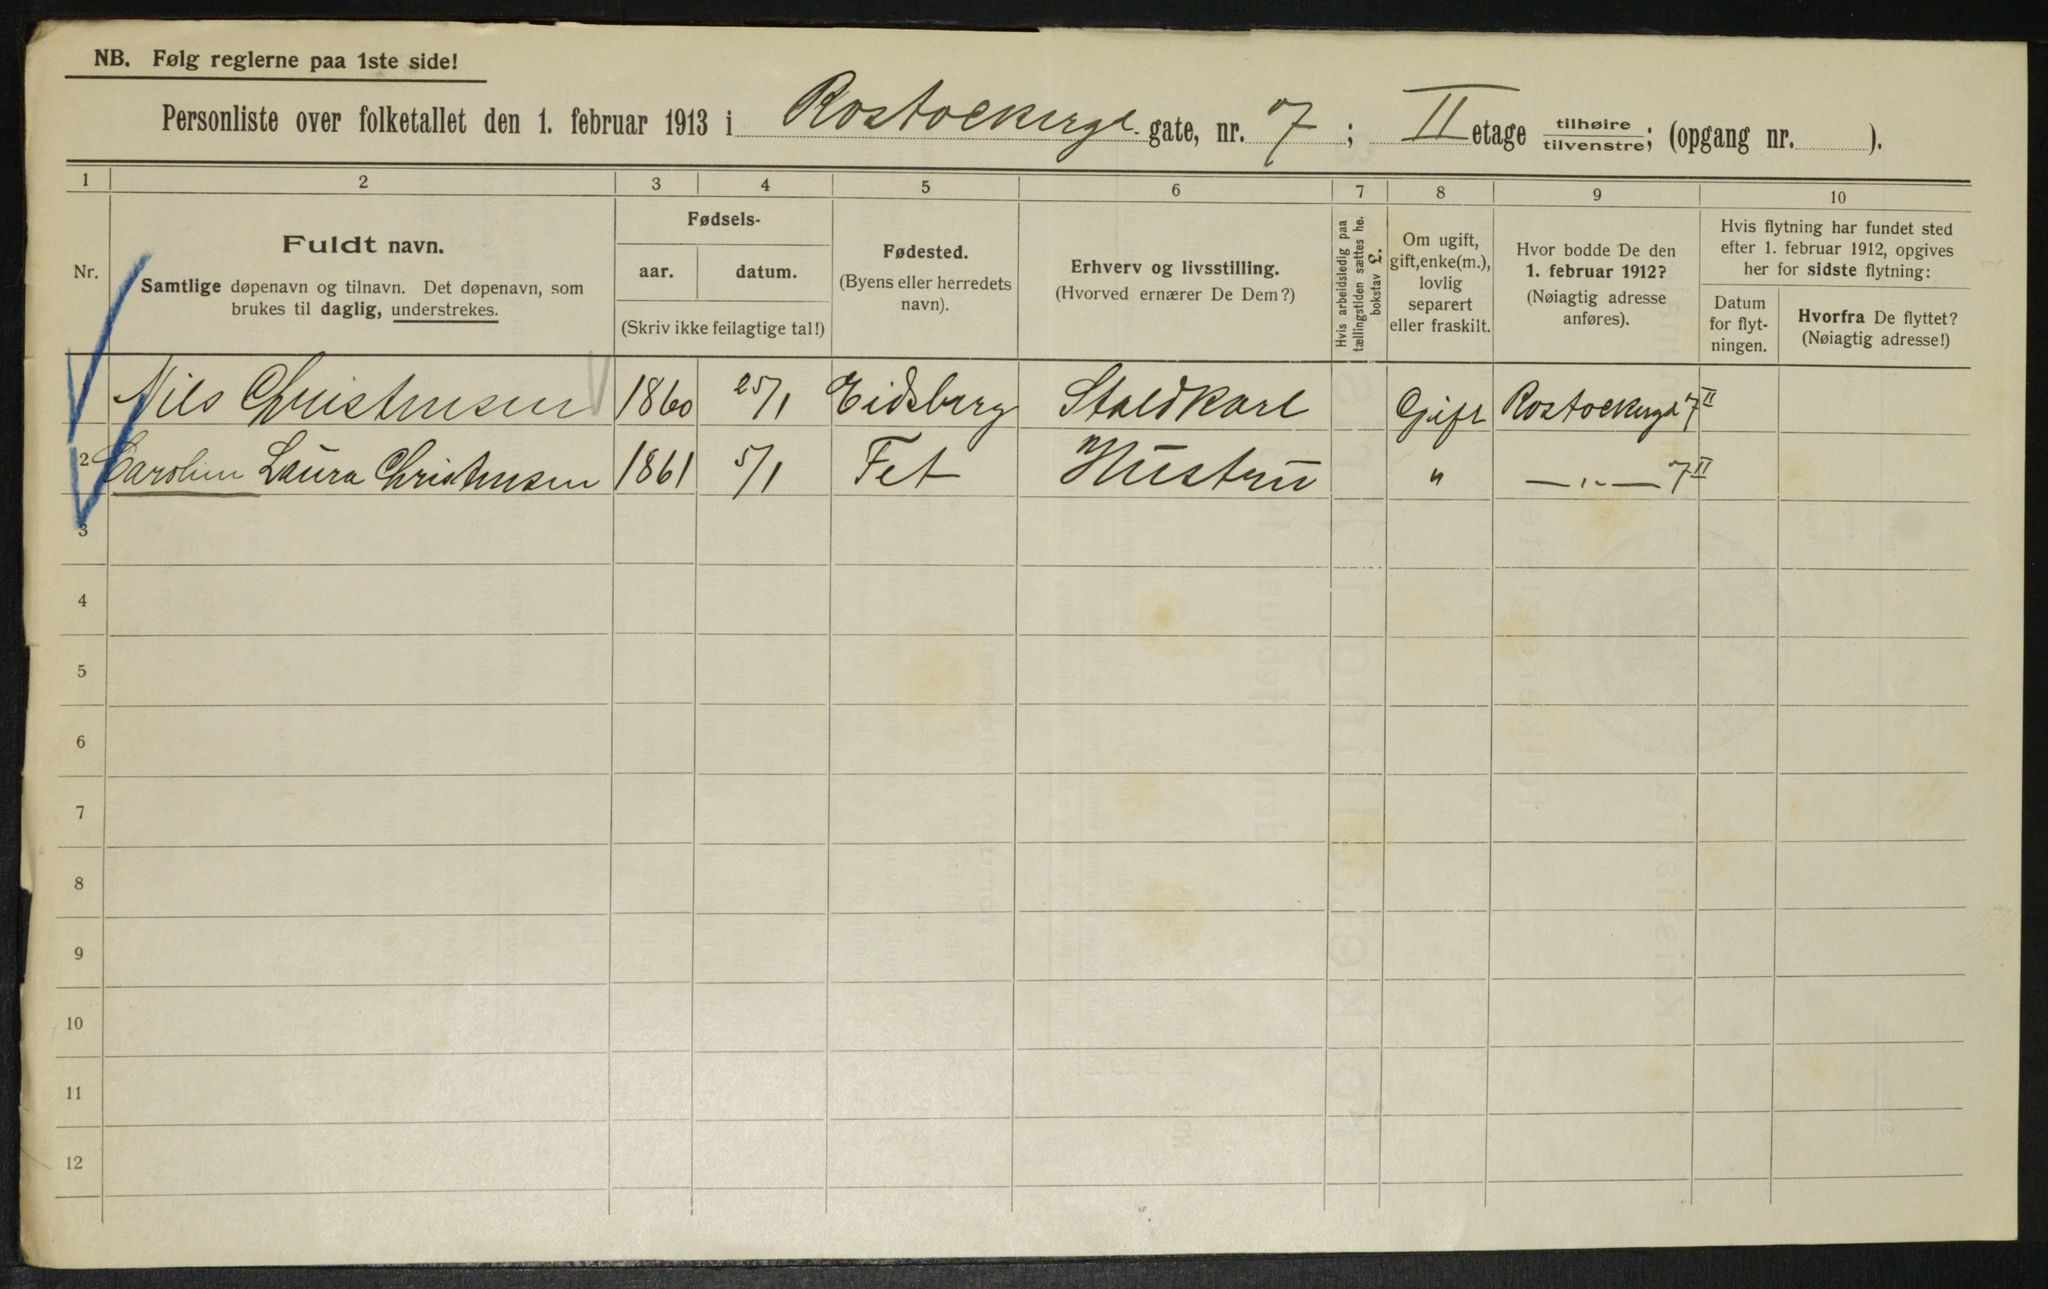 NB. Følg reglerne paa 1ste side!
Personliste over folketallet den 1. februar 1913 i Rostockergd. gate, nr. 7 ; II etage tilhøire tilvenstre; (opgang nr. ).
1 2 3 4 5 6 7 8 9 10
Nr.
Fuldt navn.
Samtlige døpenavn og tilnavn. Det døpenavn, som
brukes til daglig, understrekes.
Fødsels-
aar. datum.
(Skriv ikke feilagtige tal!)
Fødested.
(Byens eller herredets
navn).
Erhverv og livsstilling.
(Hvorved ernærer De Dem?)
Hvis arbeidsledig paa
tællingstiden sættes he.
bokstav L.
Om ugift,
gift, enke(m.),
lovlig
separert
eller fraskilt.
Hvor bodde De den
1. februar 1912?
(Nøiagtig adresse
anføres).
Hvis flytning har fundet sted
efter 1. februar 1912, opgives
her for sidste flytning:
Datum
for flyt-
ningen.
Hvorfra De flyttet?
(Nøiagtig adresse!)
Nils Christensen 1860 25/1 Eidsberg Staldkarl Gift Rostockergd 7 II
2 Caroline Laura Christensen 1861 5/1 Fet Hustru " —"— 7 II
3
4
5
6
7
8
9
10
11
12